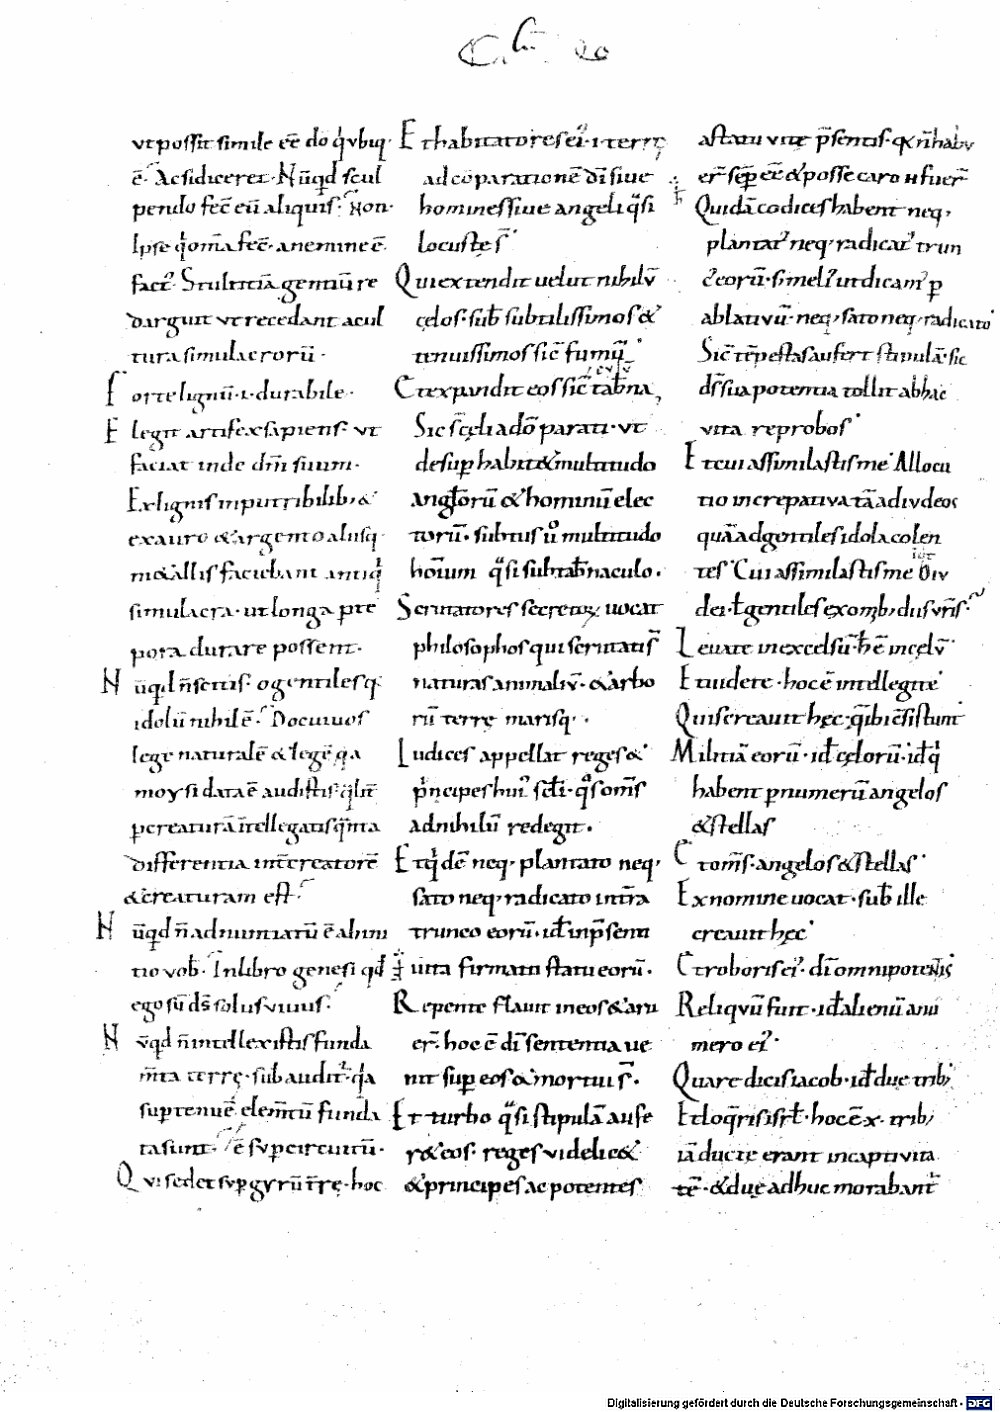 vt possit simile eē do q̇vbiq·
ē· Ac si diceret· Nūqd scul
perulo fec̄ eū aliquis· Non·
Ipse q̇ om̄a fec̄· a nemine ē
fact᷒· Stultitiā gentiū re
darguit vt recedant a cul
tura simulacrorū·
Forte lignū· i· durabile·
Elegit artifex sapiens· vt
faciat inde dm̄ suum·
Ex lignis inputribilib; &
ex auro & argento aliisq·
metallis faciebant antiq̇
simulacra· ut longa p tē
pora durare possent·
Nūqd n̄ scitis· o gentiles q
idolū nihil ē· Docui uos
lege naturalē & legē q̄a
moysi data ē audistis q̄lit̄
p creaturā intellegatis q̄nta
differentia int̄ creatorē
& creaturam est·
Nūqd n̄ adnuntiatū ē ab ini
tio vob̄· In libro genesi qđ
ego sū d̄s solus viuus·
Nv̄qd n̄ intellexistis funda
m̄ta terrę· subaudit᷒· q̄a
sup tenuē elem̄tū funda
ta sunt· ē svp circuitū·
Qui sedet svp gyrū tr̄ę· hoc
Et habitatores ei᷒· i· terrę
ad cōparationē dī siue
homines siue angeli q̄si
locustę s̄·
Qui extendit uelut nihilv̄
cęlos· sub̄ subtilissimos &
tenuissimos sic̄ fumū·
Et expandit eos sic̄ tab̄na
Sic s̄ cęli a dō parati· vt
desup habitet multitudo
angl̄orū & hominū elec
torū· subtus u᷒ multitudo
hoīum q̄si sub tab̄naculo·
Scrutatores secretoꝝ uocat
philosophos qui scrutati s̄
naturas animaliv̄· & arbo
rū terrę marisq·
Iudices appellat reges &
p̄ncipes hui᷒ scl̄i· q᷒s om̄s
ad nihilū redegit·
Et q̇dē neq; plantato neq;
sato neq; radicato int̄a
trunco eorū· id̄ in p̄senti
uita firmati statu eorū·
Repente flauit in eos & aru
er̄· hoc ē dī sententia ue
nit sup eos & mortui s̄·
Et turbo q̄si stipulā aufe
ret eos· reges videlicet
& principes ac potentes
a statu vitę p̄sentis· q̄ n̄ habv
er̄ sēp eē & posse caro n̄ fuer̄
Quidā codices habent neq;
plantat᷒ neq; radicat᷒ trun
c᷒ eorū· simel᷒ ut dicam᷒ p
ablativū· neq; sato neq; radicato
Sic̄ tēpestas aufert stipulā· sic
dī sua potentia tollit ab hac
vita reprobos·
Et cui assimilastis me· Allocu
tio increpativa tā ad ivdeos
quā ad gentiles idola colen
tes· Cui assimilastis me o iv
dei· t̄ gentiles ex omb; dīis vr̄is·
Leuate in excelsū· h̄ ē in cęlv̄·
Et uidete· hoc ē intellegite·
Quis creauit hęc· q̄ ibi ēsistunt
Militiā eorū· id̄ cęlorū· id̄ q̇
habent p numerū angelos
& stellas
Et om̄s· angelos & stellas·
Ex nomine uocat· sub̄ ille
creauit hęc·
Et roboris ei᷒· dī omnipotentis
Reliqvū fuit· id̄ alienū a nu
mero ei᷒·
Quare dicis iacob· id̄ duę trib;
Et loq̄ris isrl̄· hoc ē x· trib;
iā ductę erant in captivita
tē· & duę adhuc morabant᷒
Digitalisierung gefördert durch die Deutsche Forschungsgemeinschaft - DFG